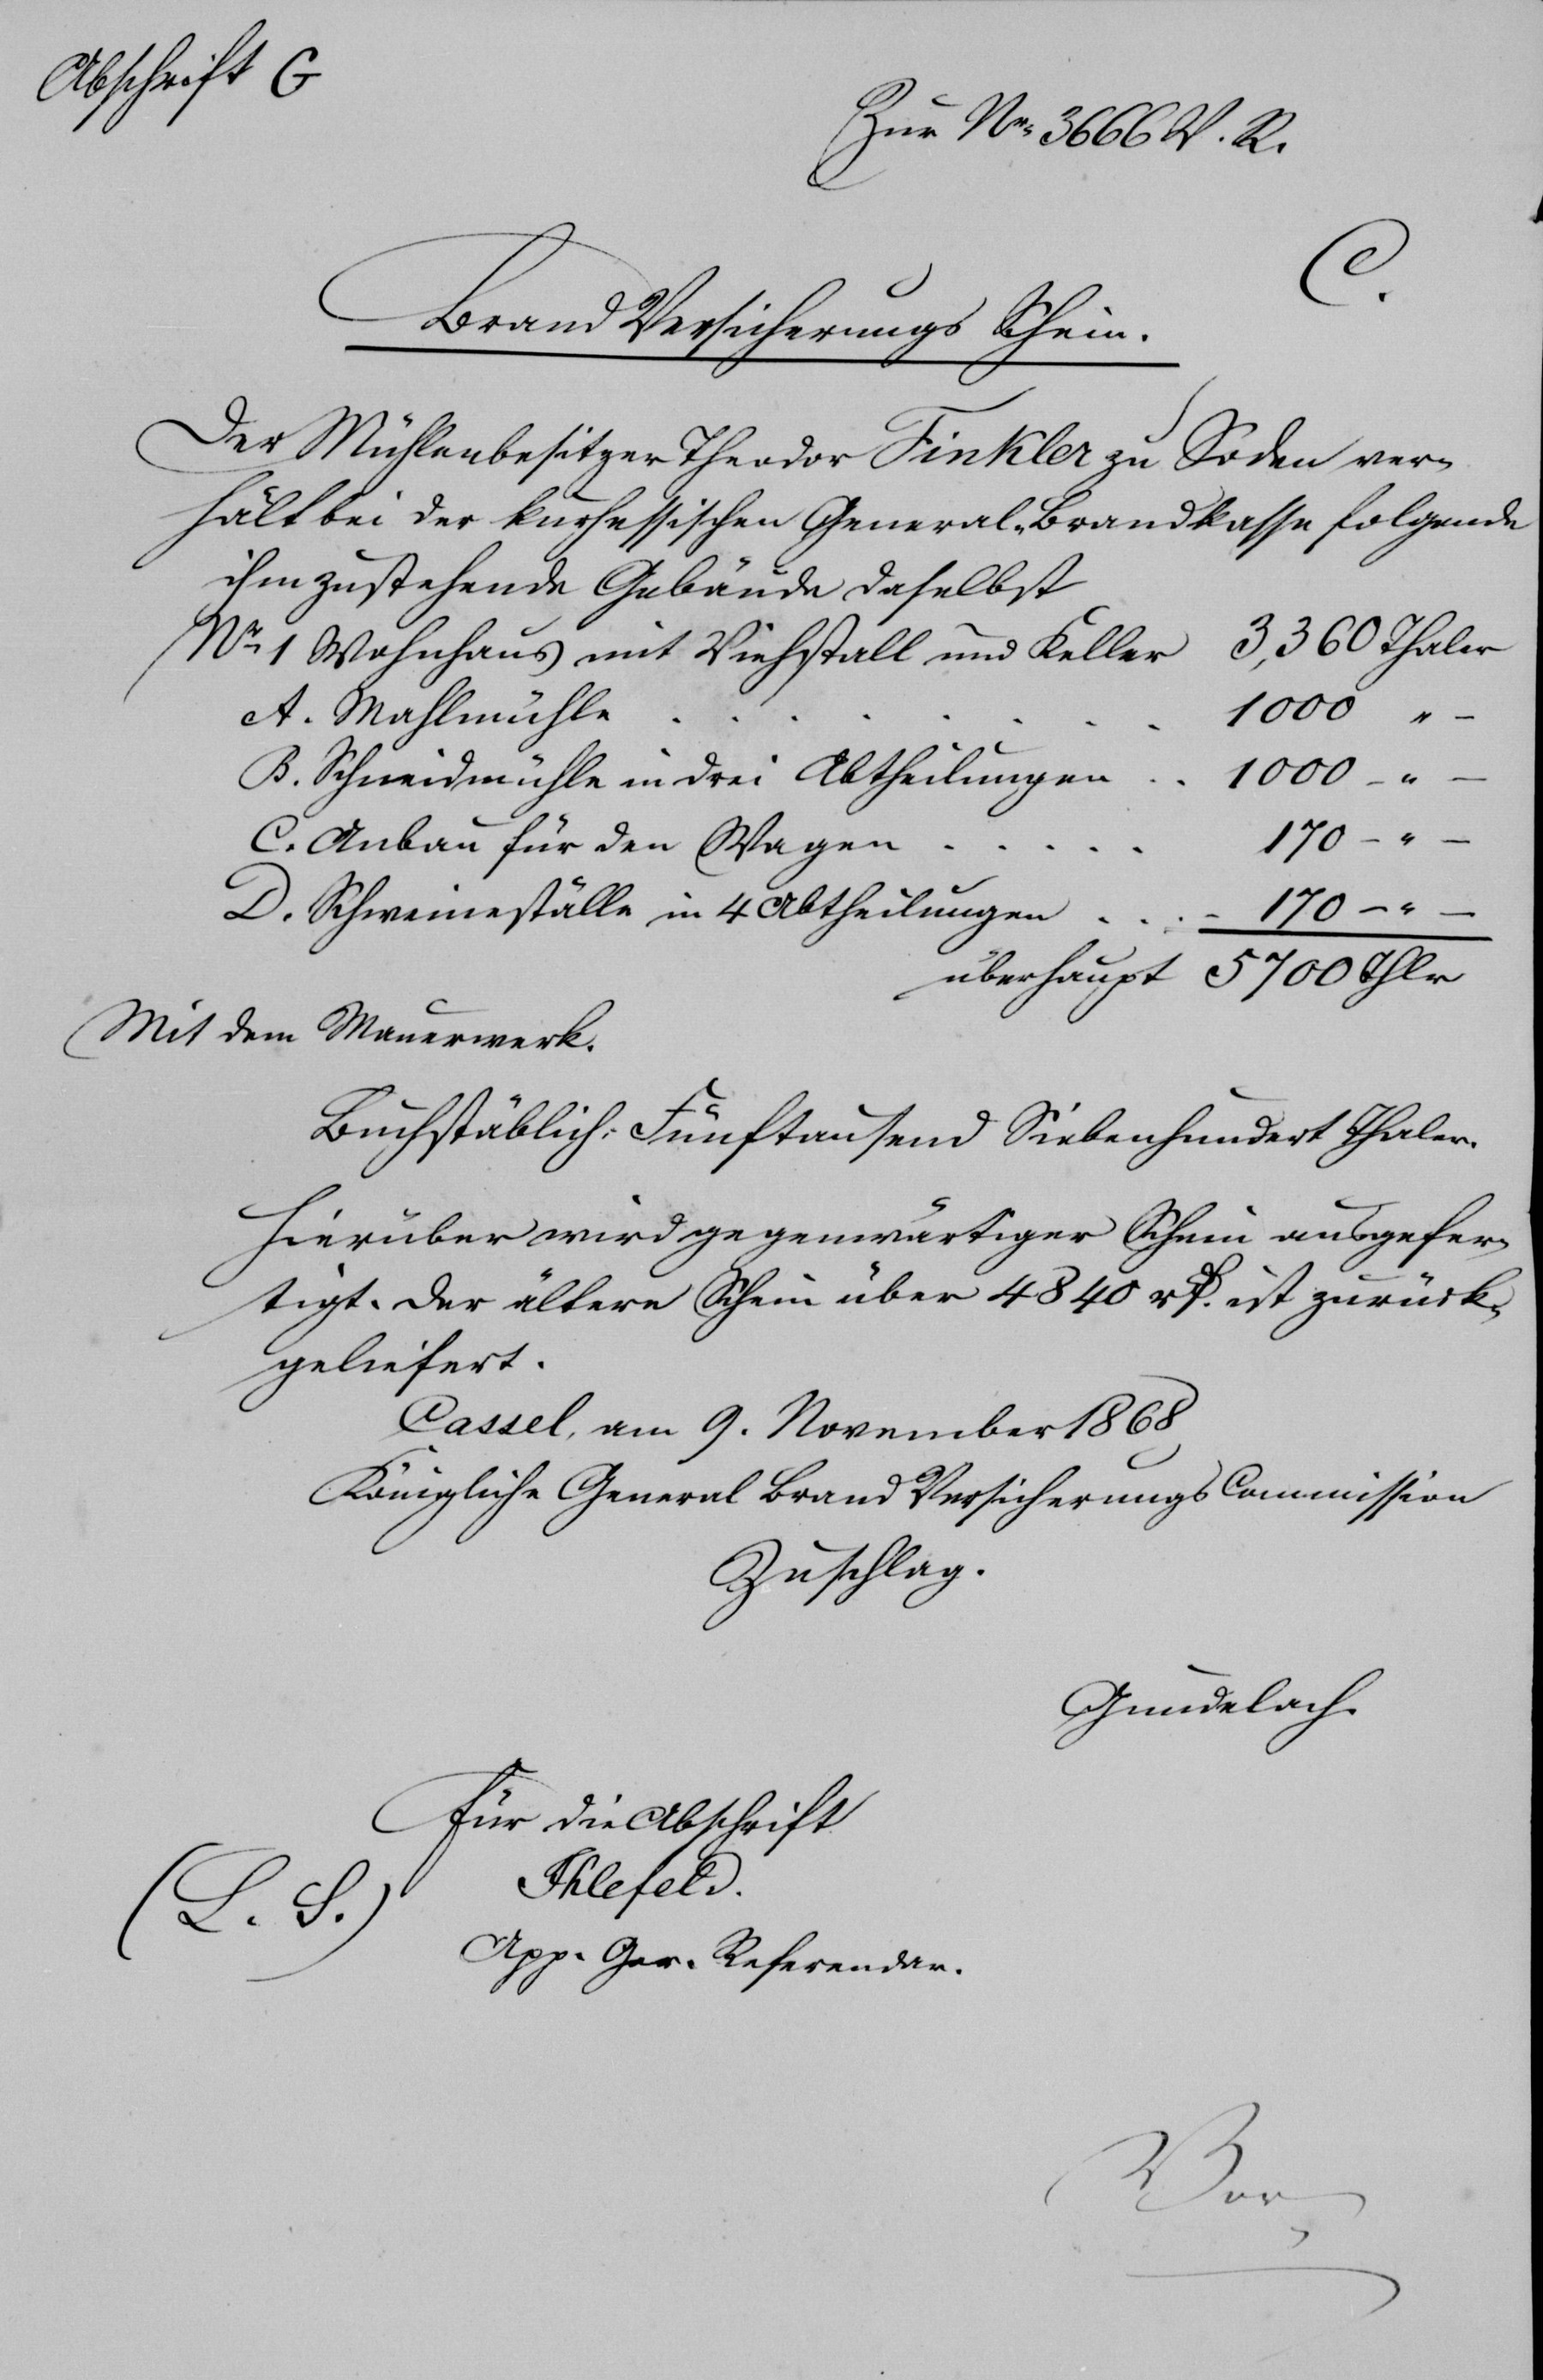 Abschrift G
Zur Nr. 3666 V. R.
C.
Brand Versicherungs Schein.
Der Mühlenbesitzer Theodor Finkler zu Soden ver-
hält bei der kurhessischen General-Brandkasse folgende
ihm zustehende Gebäude daselbst
Nr. 1 Wohnhaus mit Viehstall und Keller 3,360 Thaler
A. Mahlmühle . . . . . . . . 1000 " -
B. Schneidmühle in drei Abtheilungen . . 1000 - " -
C. Anbau für den Wagen . . . . . 170 - " -
D. Schweineställe in 4 Abtheilungen . . . - 170 - " -
überhaupt 5700 Thlr
Mit dem Mauerwerk.
Buchstäblich: Fünftausend Siebenhundert Thaler.
Hierüber wird gegenwärtiger Schein ausgefer-
tigt. Der ältere Schein über 4840 rℓ. ist zurück-
geliefert.
Cassel, am 9. November 1868
Königliche General Brand Versicherungs Commission
Zuschlag.
Gundelach.
Für die Abschrift
(L. S.) Ihlefeld.
App. Ger. Referendar.